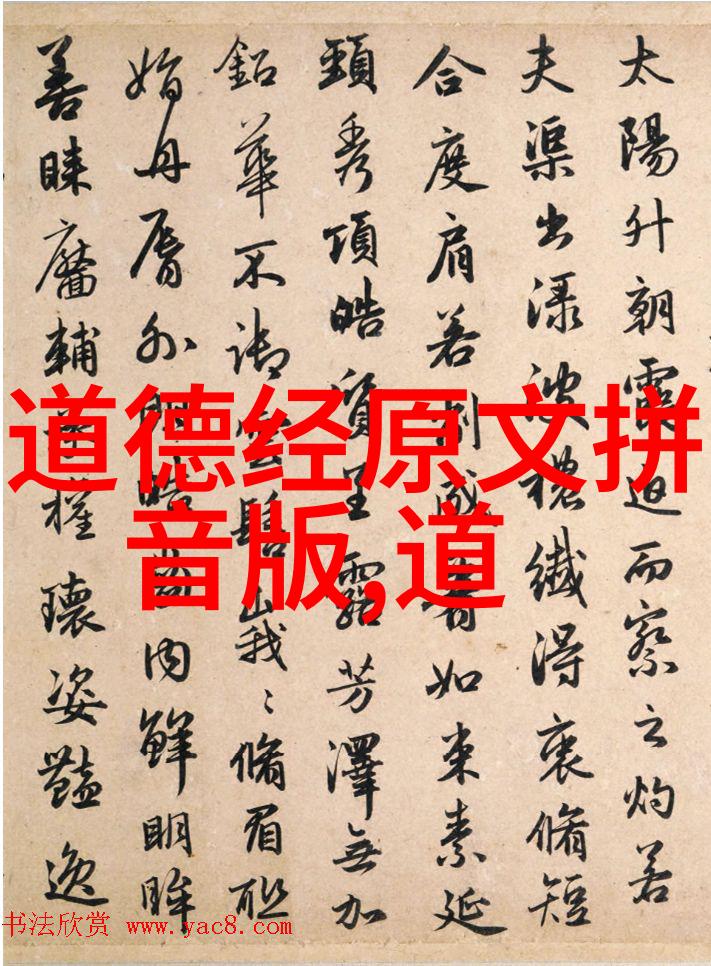 太陽升朝霞迫而察之灼若
夫渠出渌波穠纖得衷脩短
合度肩若削成如束素延
頸秀項皓質呈露芳澤無加
鉛華不御雲髻峩〻脩眉聯
娟丹脣外朗皓齒内鮮明眸
善睞靨輔承權瓌姿豔逸
道德经原文拼
音版,道
书法欣赏 www.yac8.com